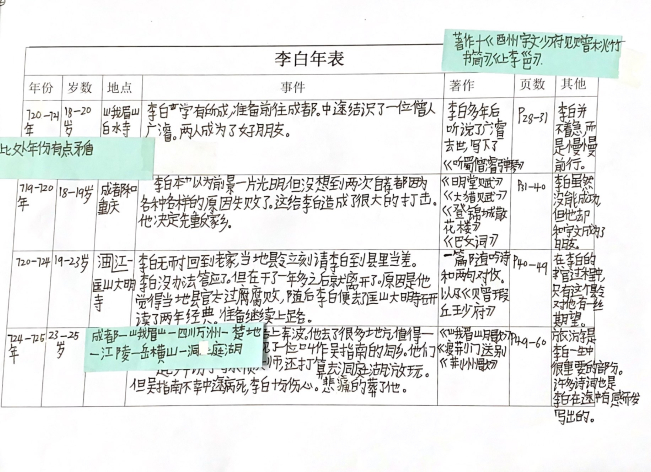 著作+《酉州宇文少府见赠桃竹
书筒》《上李邕》
李白年表
年份 岁数 地点 事件 著作 页数 其他
720-721
18-20
岁
峨眉山
白水寺
李白学有所成,准备前往成都。中途结识了一位僧人
广濬。两人成为了好朋友。
李白多年后
听说了广濬
去世,写下了
《听蜀僧濬弹琴》
P28-31
李白并
不着急,而
是慢慢
前行。
此处年份有点矛盾
719-720
年
18-19岁
成都和
重庆
李白本以为前景一片光明,但没想到两次自荐都因
各种各样的原因失败了。这给李白造成了很大的打击。
他决定先重故家乡。
《明堂赋》
《大猎赋》
《登锦城散
花楼》
《巴女词》
P31-40
李白虽然
没能成功,
但他却
和宇文成为了
朋友。
720-724
年
19-23岁
匡山大明
寺
李白无奈才回到老家,当地县令立刻请李白到县里当差。
李白没办法答应了。但在了一年多之后就离开了。原因是他
觉得当地县官太过腐败,随后李白便去了匡山大明寺研
读了两年经典。准备继续上路。
一篇随谁吟诗
和两句对仗。
以及《赠瑕
丘王少府》
P40-49
在李白的
求官过程中,
只有这个县令
对他有一丝
期望。
724-725
年
23-25
岁
成都—峨眉山—四川万州—楚地
—江陵—岳衡山—洞庭湖
上奔波。他去了很多地方,值得一
了一位叫作吴指南的同乡。他们
师还打算去洞庭湖游玩。
但吴指南不幸中途病死,李白十分伤心。悲痛的葬了他。
《峨眉山月歌》
《渡荆门送别》
《荆州歌》
P49-60
旅游是
李白一生中
很重要的部分。
许多诗词也是
李白在途中有感而发
写出的。